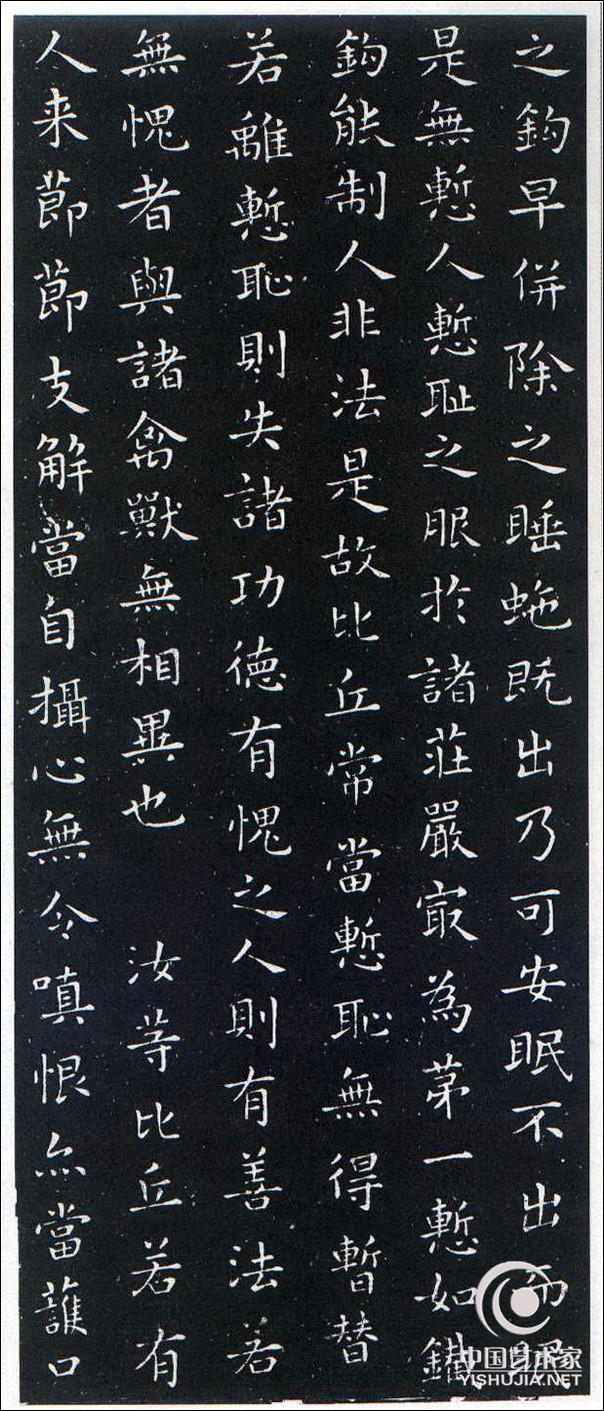 之鈎早併除之睡虵既出乃可安眠不出而眠
是無慙人慙耻之服於諸莊嚴冣為苐一慙如鐵
鈎能制人非法是故比丘常當慙恥無得暫替
若離慙恥則失諸功徳有愧之人則有善法若
無愧者與諸禽獸無相異也　汝等比丘若有
人来節節支解當自攝心無令嗔恨亦當護口
中国艺术家
YISHUJIA.NET